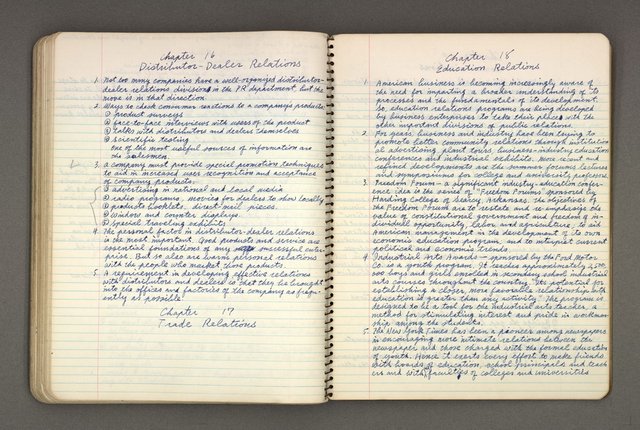 Chapter 16
Distributor-Dealer Relations
1. Not too many companies have a well-organized distributor-
dealer relations division in the PR department but the
move is in that direction
2. Ways to check consumer reactions to a company's products
① product surveys
② face-to-face interviews with users of the product
③ talks with distributors and dealers themselves
④ scientific testing
One of the most useful sources of information are
the salesmen
3. A company must provide special promotion techniques
to aid in increased user recognition and acceptance
of company products.
① advertising in national and local media
② radio programs, movies for dealers to show locally
③ products booklets, direct-mail pieces.
④ window and counter displays
⑤ special traveling exhibits
4. The personal factor in distributor-dealer relations
is the most important. Good products and service are
essential foundations of any successful enter-
prise. But so also are warm personal relations
with the people who market those products
5. A requirement in developing effective relations
with distributors and dealers is that they be brought
into the offices and factories of the company as frequ-
ently as possible.
Chapter 17
Trade Relations
Chapter 18
Education Relations
1. American business is becoming increasingly aware of
the need for imparting a broader understanding of its
processes and the fundamentals of its development.
So, education relations programs are being developed
by business enterprises to take their places with the
other important divisions of public relations.
2. For years, business and industry have been trying to
promote better community relations through institution-
al advertising, plant tours, business-industry-education
conferences and industrial exhibits. More recent and
refined developments are the summer forums, lectures
and symposiums for college and university professors.
3. Freedom Forum - a significant industry-education confer-
ence idea is the series of "Freedom Forums" sponsored by
Harding College of Searcy, Arkansas. The objectives of
the Freedom Forum are to restate and re-emphasize the
value of constitutional government and freedom of in-
dividual opportunity, labor and agriculture; to aid
American management in the development of its own
economic education program, and to interpret current
political and economic trends.
4. Industrial Arts Awards - sponsored by the Ford Motor
Co. is a youth program, "It reaches approximately 4,500,
000 boys and girls enrolled in secondary school industrial
arts courses throughout the country. "Its potential for
establishing a closer, more favorable relationship with
education is greater than any activity." The program is
designed to be a tool for the industrial arts teacher, a
method for stimulating interest and pride in workman-
ship among the students.
5. The New York Times has been a pioneer among newspapers
in encouraging more intimate relations between the
newspaper and those charged with the formal education
of youth. Hence it exerts every effort to make friends
with boards of education, school principals and teach-
ers and with faculties of colleges and universities